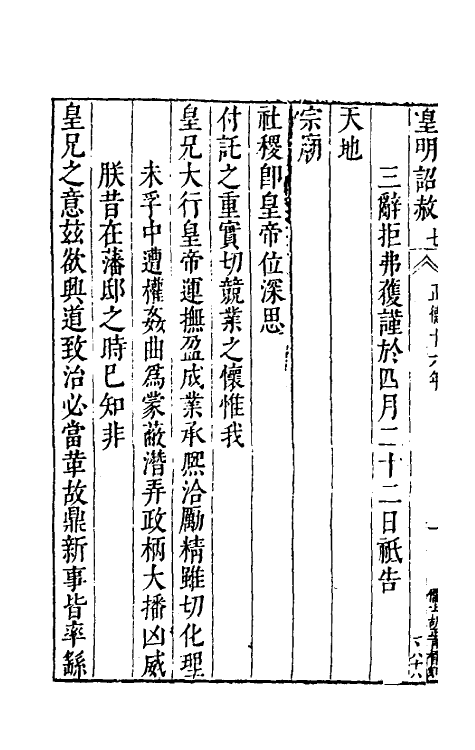 皇明詔赦 七 正德十六年 一
三辭拒弗獲謹於四月二十二日祗告
天地
宗廟
社稷卽皇帝位深思
付託之重實切競業之懷惟我
皇兄大行皇帝運撫盈成業承熙洽勵精雖切化理
未孚中遭權姦曲爲蒙蔽潛弄政柄大播凶威
朕昔在藩邸之時已知非
皇兄之意茲欲興道致治必當革故鼎新事皆率繇